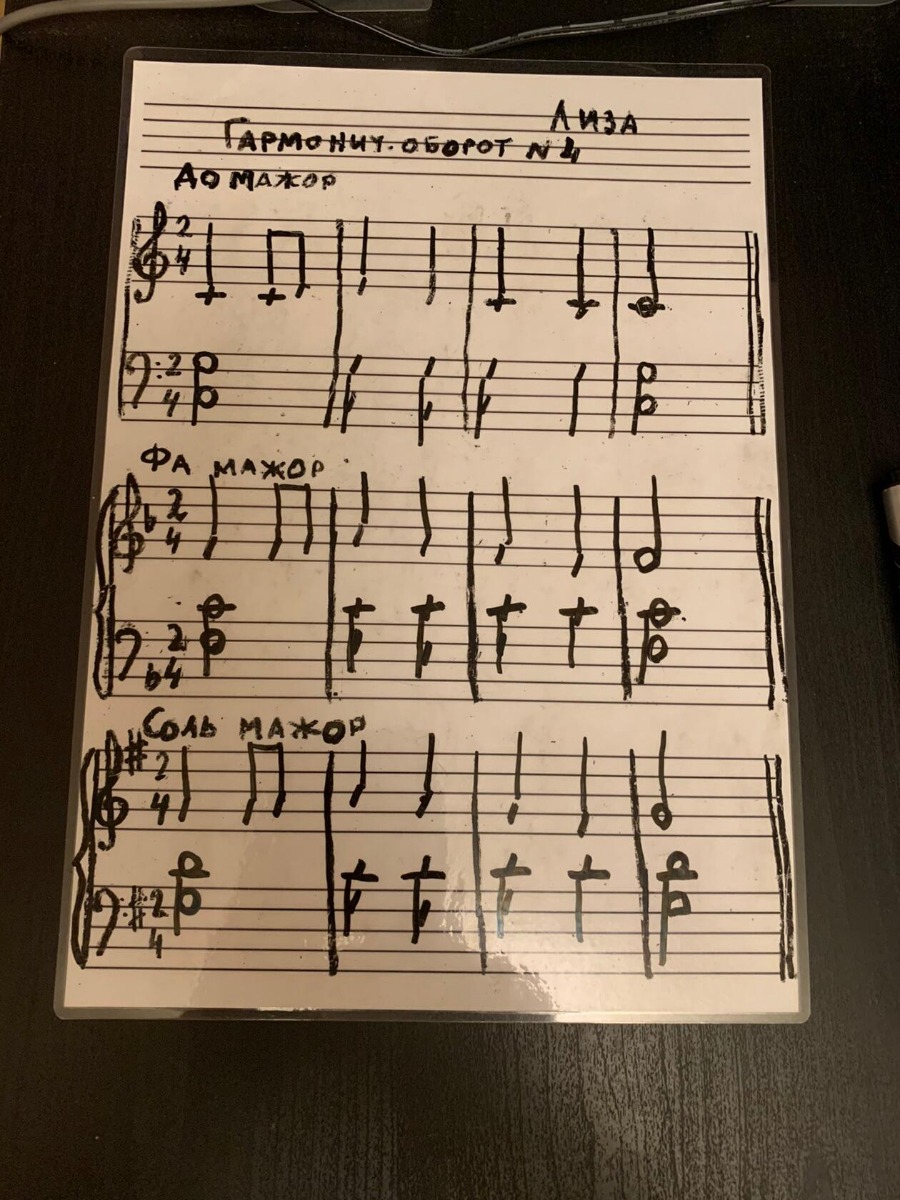 Лиза
Гармонич. оборот N 4
До мажор
2
4
2
4
Фа мажор
2
4
2
4
Соль мажор
2
4
2
4